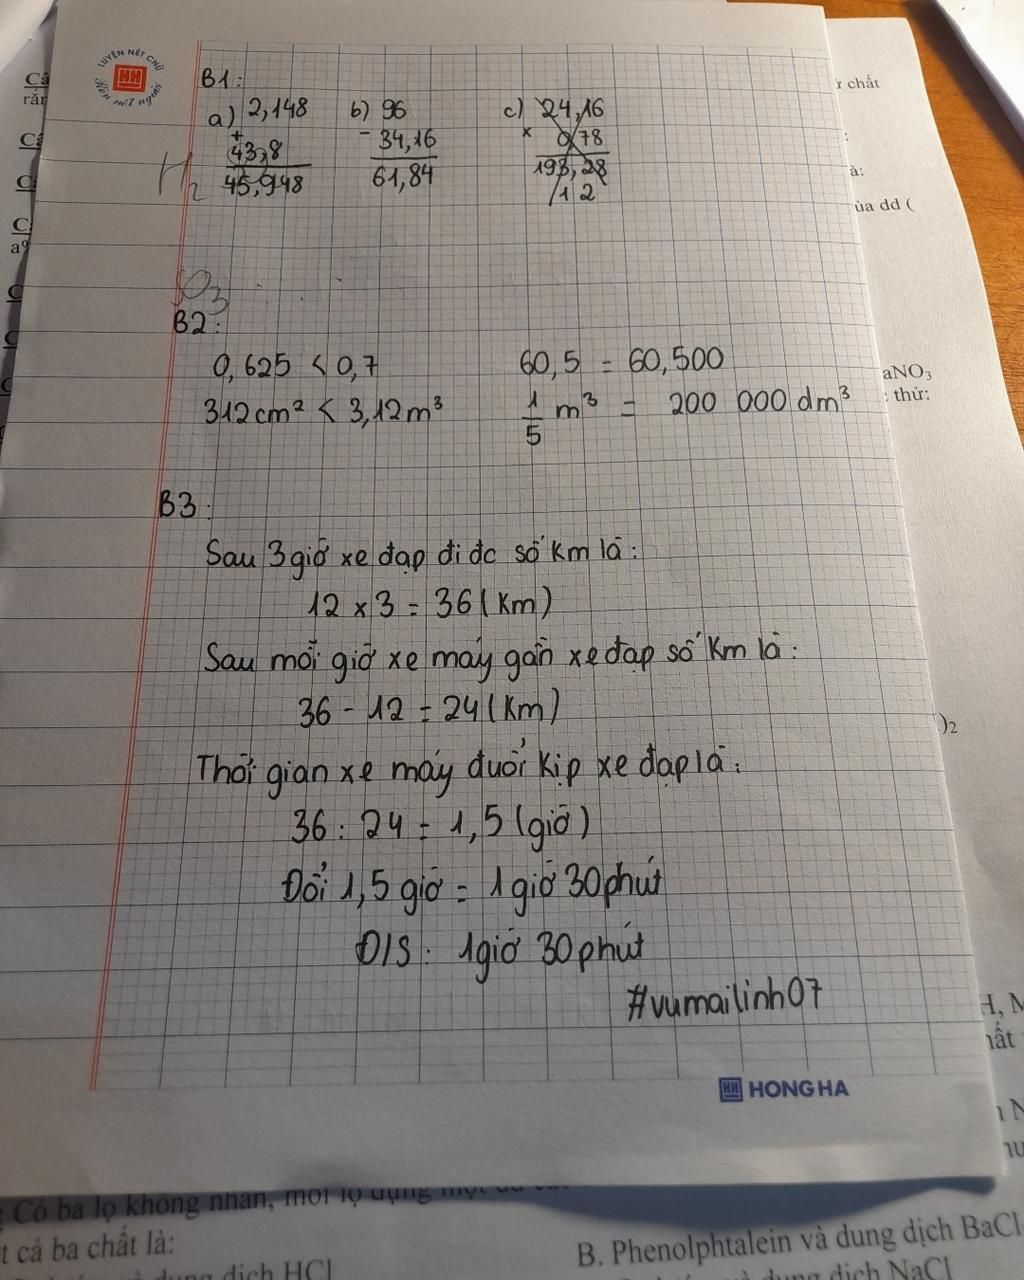 LUYỆN NÉT CHỮ
Rèn nết người
B1:
a) 2,148
+
43,8
45,948
b) 96
- 34,16
61,84
c) 24,16
x
0,78
193,28
/12
H2
SO3
B2:
0,625 < 0,7
60,5 = 60,500
312cm² < 3,12m³
1/5 m³ = 200 000 dm³
B3:
Sau 3 giờ xe đạp đi đc số km là:
12 x 3 = 36 (km)
Sau mỗi giờ xe máy gần xe đạp số km là:
36 - 12 = 24 (km)
Thời gian xe máy đuổi kịp xe đạp là:
36 : 24 = 1,5 (giờ)
Đổi 1,5 giờ = 1 giờ 30 phút
Đ/S: 1 giờ 30 phút
#vumailinh07
HONG HA
chất
ủa dd (
aNO₃
thử:
)₂
Có ba lọ không nhãn, mỗi lọ đựng một
t cả ba chất là:
B. Phenolphtalein và dung dịch BaCl
dung dịch HCl
dung dịch NaCl